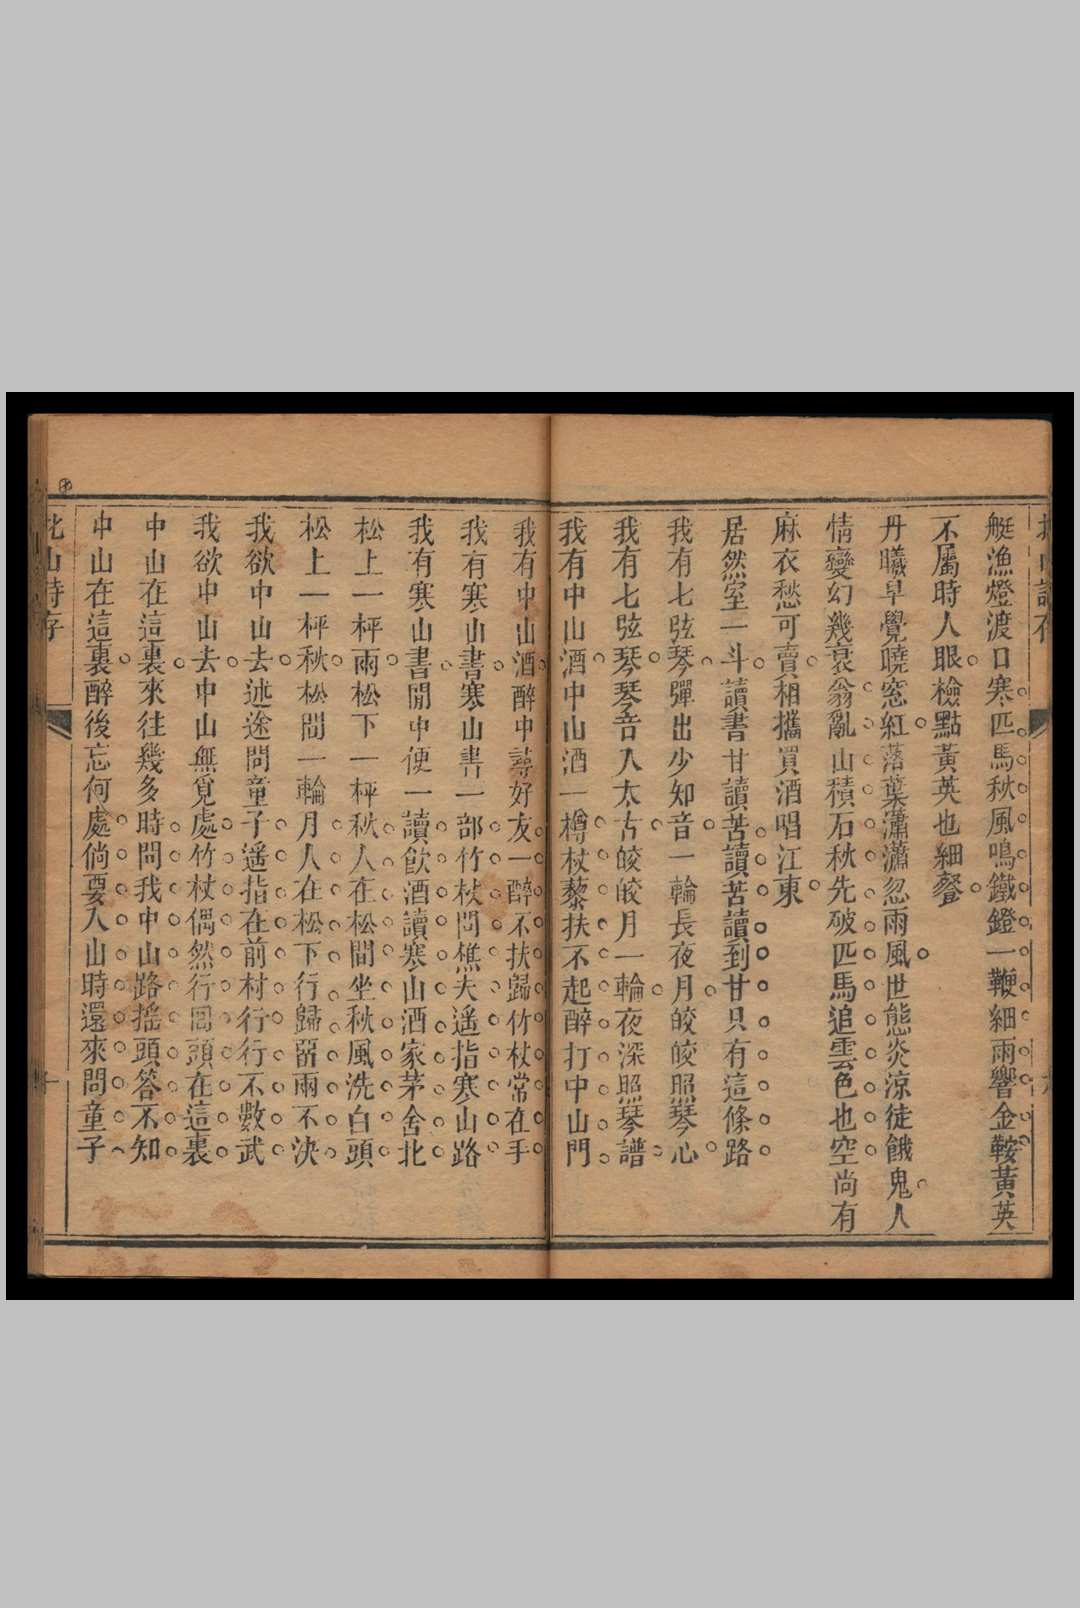 艇漁燈渡口寒匹馬秋風鳴鐵鐙一鞭細雨響金鞍黃英
不屬時人眼檢點黃英也細餐
丹曦早覺曉窓紅落葉瀟瀟忽雨風世態炎涼徒餓鬼人
情變幻幾衰翁亂山積石秋先破匹馬追雲色也空尚有
麻衣愁可賣相攜買酒唱江東
居然室一斗讀書甘讀苦讀苦讀到甘只有這條路
我有七弦琴彈出少知音一輪長夜月皎皎照琴心
我有七弦琴琴音入太古皎皎月一輪夜深照琴譜
我有中山酒中山酒一樽杖藜扶不起醉打中山門
我有中山酒醉中尋好友一醉不扶歸竹杖常在手
我有寒山書寒山書一部竹杖問樵夫遥指寒山路
我有寒山書閒中便一讀飲酒讀寒山酒家茅舍北
松上一枰雨松下一枰秋人在松間坐秋風洗白頭
松上一枰秋松間一輪月人在松下行歸留兩不決
我欲中山去述途問童子遥指在前村行行不數武
我欲中山去中山無覓處竹杖偶然行囘頭在這裏
中山在這裏來往幾多時問我中山路搖頭答不知
中山在這裏醉後忘何處倘要入山時還來問童子
北山詩存